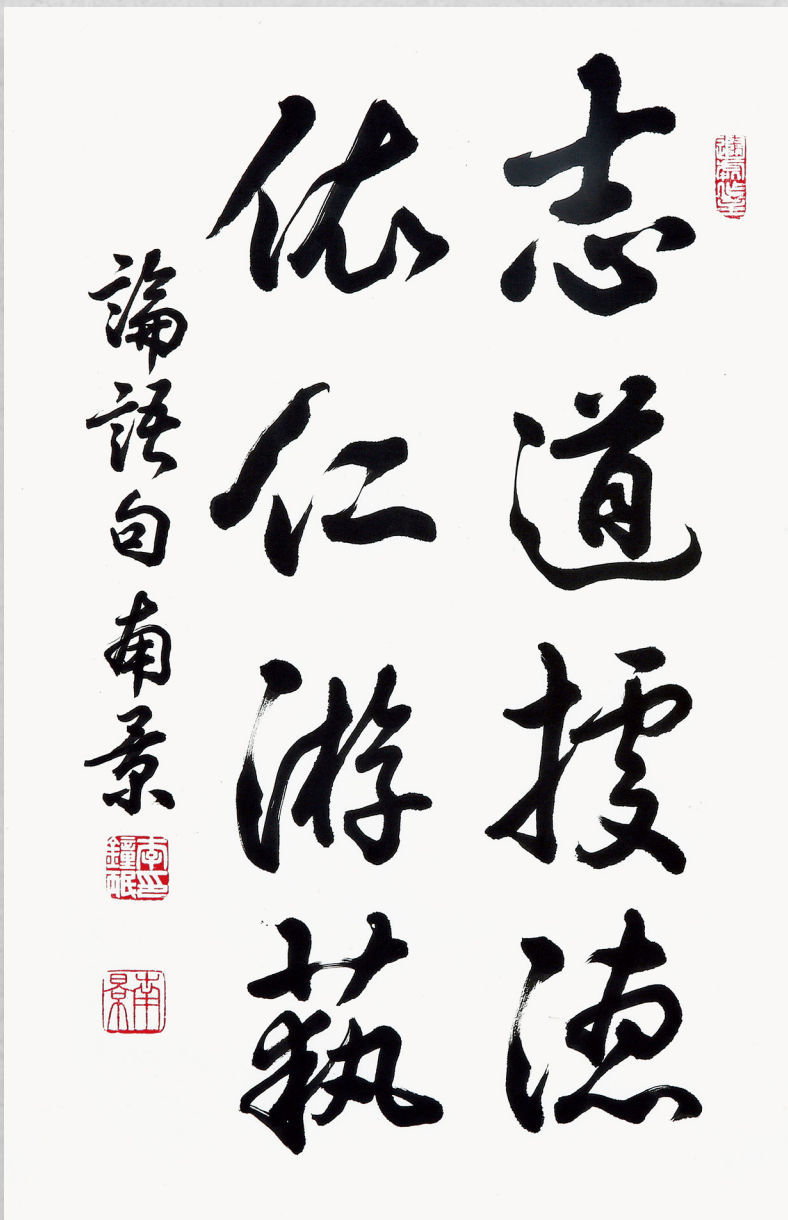 志道據德
依仁游藝
論語句 南景
南景